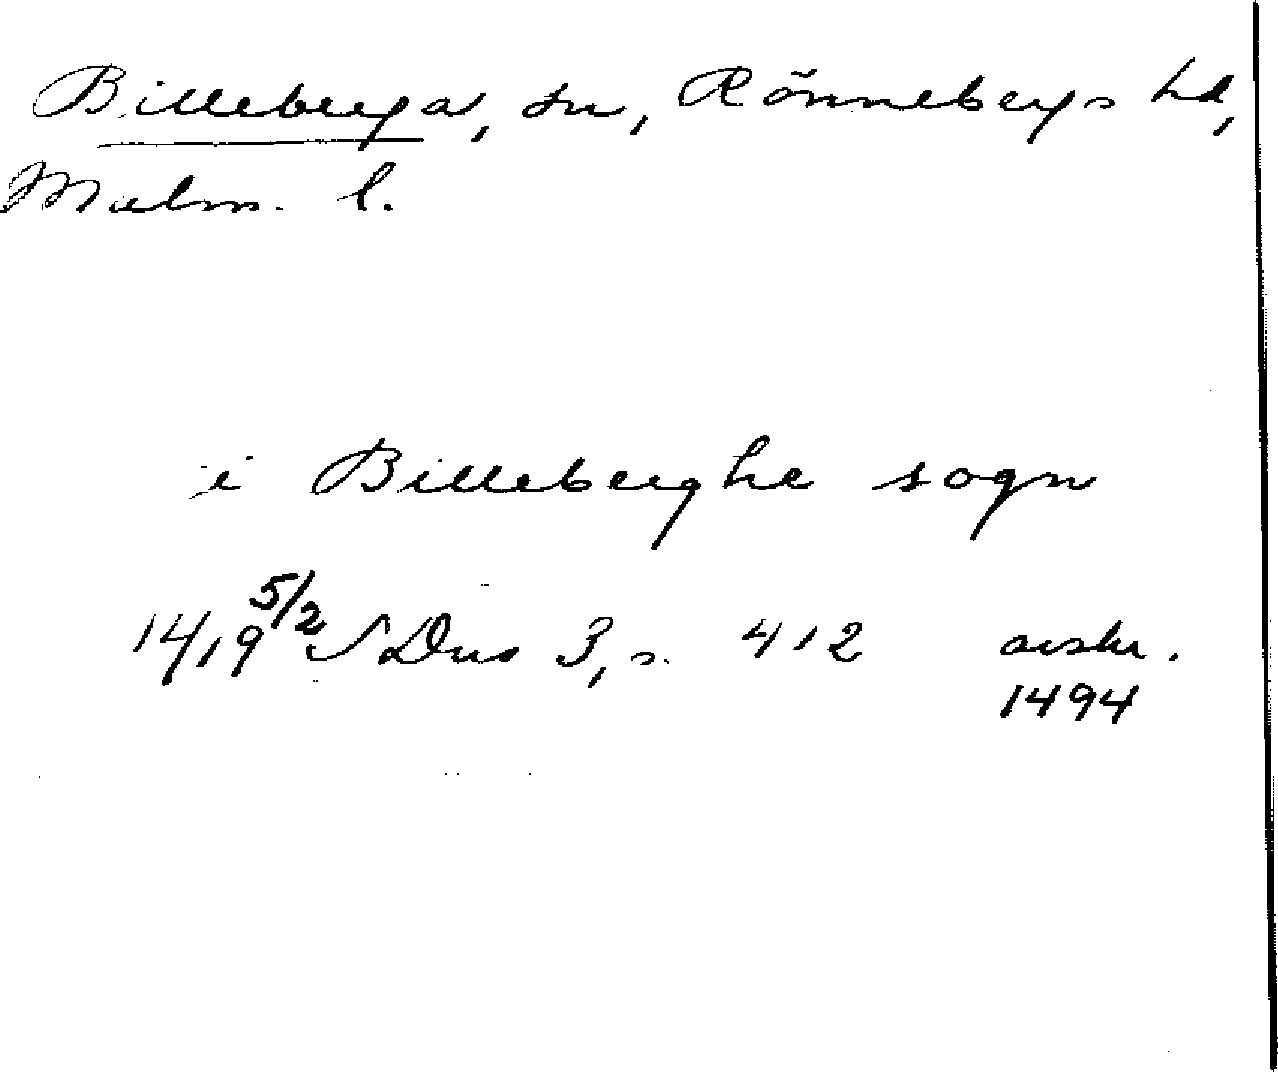 Billeberga, sn, Rönnebergs hd,
Malm. l.
i Billeberghe sogn
1419 5/2 SDns 3, s. 412 avskr.
1494